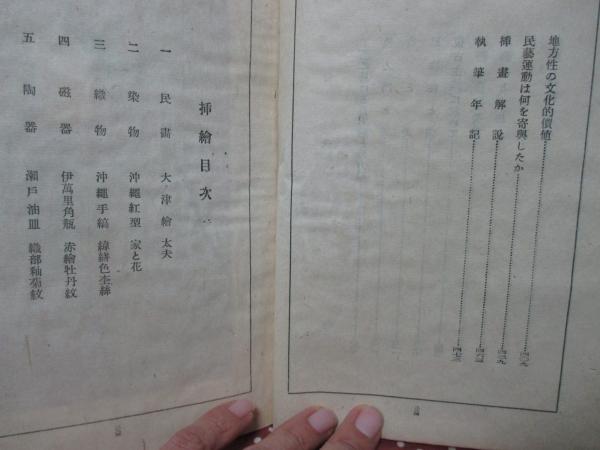 地方性の文化的價値
民藝運動は何を寄與したか 四一九
挿畫解說 四三九
執筆年記 四七三
挿繪目次
一 民畫 大津繪 太夫
二 染物 沖繩紅型 家と花
三 織物 沖繩手縞 緯絣色杢絲
四 磁器 伊萬里角瓶 赤繪牡丹紋
五 陶器 瀨戶油皿 織部釉菊紋